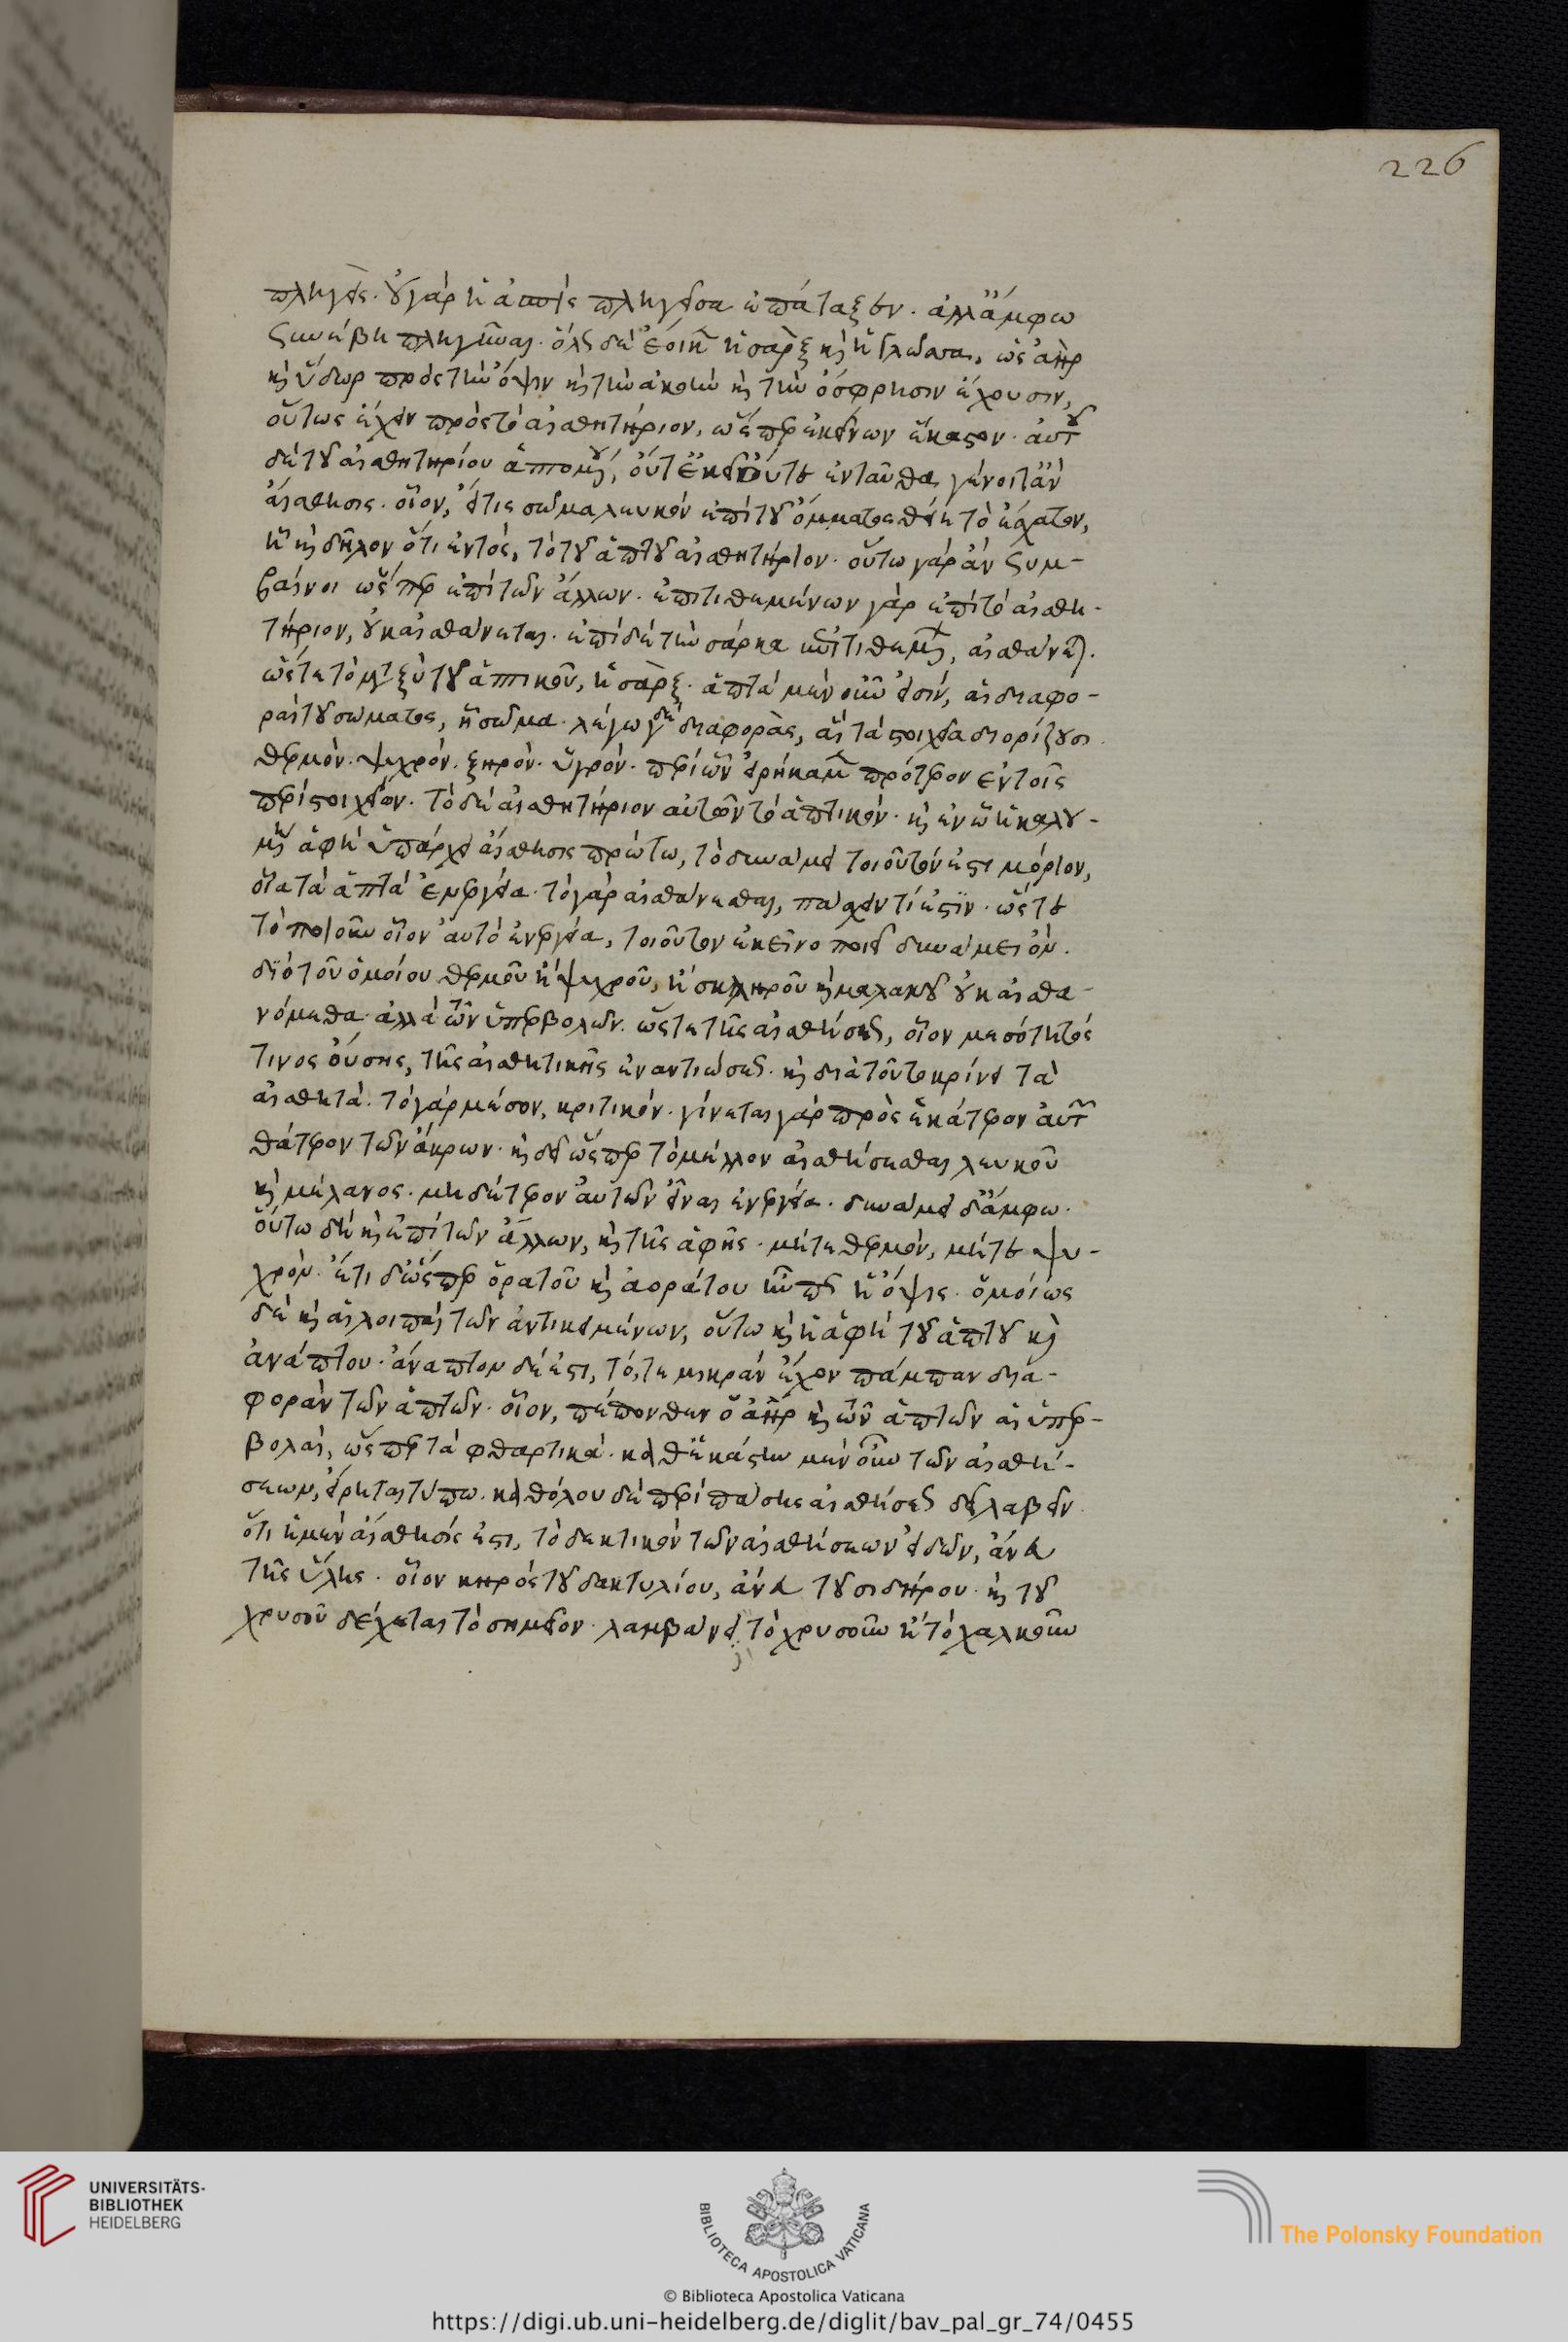 226
πληγείς. οὐ γὰρ ἡ ἀσπὶς πληγεῖσα ἐπάταξεν. ἀλλ' ἄμφω
συνέβη πληγῆναι. ὅλως δὲ ἔοικεν ἡ σὰρξ καὶ ἡ γλῶσσα, ὡς ἀὴρ
καὶ ὕδωρ πρὸς τὴν ὄψιν καὶ τὴν ἀκοὴν καὶ τὴν ὄσφρησιν ἔχουσιν,
οὕτως ἔχειν πρὸς τὸ αἰσθητήριον, ὥσπερ ἐκείνων ἕκαστον. αὐτοῦ
δὲ τοῦ αἰσθητηρίου ἁπτομένου, οὔτ' ἐκεῖ οὔτε ἐνταῦθα γένοιτ' ἂν
αἴσθησις. οἷον, εἴ τις σῶμα λευκὸν ἐπὶ τοῦ ὄμματος θείη τὸ ἔσχατον,
ᾗ καὶ δῆλον ὅτι ἐντὸς, τὸ τοῦ ἁπτοῦ αἰσθητήριον. οὕτω γὰρ ἂν συμ-
βαίνοι ὥσπερ ἐπὶ τῶν ἄλλων. ἐπιτιθεμένων γὰρ ἐπὶ τὸ αἰσθη-
τήριον, οὐκ αἰσθάνεται. ἐπὶ δὲ τὴν σάρκα ἐπιτιθεμένων, αἰσθάνεται.
ὥστε τὸ μεταξὺ τοῦ ἁπτικοῦ, ἡ σάρξ. ἁπτὰ μὲν οὖν εἰσίν, αἱ διαφο-
ραὶ τοῦ σώματος, ᾗ σῶμα. λέγω δὲ διαφορὰς, αἳ τὰ στοιχεῖα διορίζουσι.
θερμὸν. ψυχρόν. ξηρὸν. ὑγρόν. περὶ ὧν εἰρήκαμεν πρότερον ἐν τοῖς
περὶ στοιχείων. τὸ δὲ αἰσθητήριον αὐτῶν τὸ ἁπτικόν. καὶ ἐν ᾧ ἡ καλου-
μένη ἁφὴ ὑπάρχει αἴσθησις πρώτῳ, τὸ δυνάμει τοιοῦτόν ἐστι μόριον,
οἷα τὰ ἁπτὰ ἐνεργείᾳ. τὸ γὰρ αἰσθάνεσθαι, πάσχειν τί ἐστιν. ὥστε
τὸ ποιοῦν οἷον αὐτὸ ἐνεργείᾳ, τοιοῦτον ἐκεῖνο ποιεῖ δυνάμει ὄν.
διὸ τοῦ ὁμοίου θερμοῦ ἢ ψυχροῦ, ἢ σκληροῦ καὶ μαλακοῦ οὐκ αἰσθα-
νόμεθα. ἀλλὰ τῶν ὑπερβολῶν. ὥστε τῆς αἰσθήσεως, οἷον μεσότητός
τινος οὔσης, τῆς αἰσθητικῆς ἐναντιώσεως. καὶ διὰ τοῦτο κρίνει τὰ
αἰσθητὰ. τὸ γὰρ μέσον, κριτικόν. γίνεται γὰρ πρὸς ἑκάτερον αὐτῶν
θάτερον τῶν ἄκρων. καὶ δεῖ ὥσπερ τὸ μέλλον αἰσθήσεσθαι λευκοῦ
καὶ μέλανος. μηδέτερον αὐτῶν εἶναι ἐνεργείᾳ. δυνάμει δ' ἄμφω.
οὕτω δὴ καὶ ἐπὶ τῶν ἄλλων, καὶ τῆς ἁφῆς. μήτε θερμὸν, μήτε ψυ-
χρόν. ἔτι δ' ὥσπερ ὁρατοῦ καὶ ἀοράτου ἦν πως ἡ ὄψις. ὁμοίως
δὲ καὶ αἱ λοιπαὶ τῶν ἀντικειμένων, οὕτω καὶ ἡ ἁφὴ τοῦ ἁπτοῦ καὶ
ἀνάπτου. ἄναπτον δέ ἐστι, τό, τε μικρὰν ἔχον πάμπαν δια-
φορὰν τῶν ἁπτῶν. οἷον, πέπονθεν ὁ ἀὴρ καὶ τῶν ἁπτῶν αἱ ὑπερ-
βολαί, ὥσπερ τὰ φθαρτικά. καθ' ἑκάστην μὲν οὖν τῶν αἰσθή-
σεων, εἴρηται τύπῳ. καθόλου δὲ περὶ πάσης αἰσθήσεως δεῖ λαβεῖν.
ὅτι ἡ μὲν αἴσθησίς ἐστι, τὸ δεκτικὸν τῶν αἰσθήσεων εἰδῶν, ἄνευ
τῆς ὕλης. οἷον κηρὸς τοῦ δακτυλίου, ἄνευ τοῦ σιδήρου. καὶ τοῦ
χρυσοῦ δέχεται τὸ σημεῖον. λαμβάνει τὸ χρυσοῦν ἢ τὸ χαλκοῦν
UNIVERSITÄTS-
BIBLIOTHEK
HEIDELBERG
BIBLIOTECA APOSTOLICA VATICANA
The Polonsky Foundation
© Biblioteca Apostolica Vaticana
https://digi.ub.uni-heidelberg.de/diglit/bav_pal_gr_74/0455